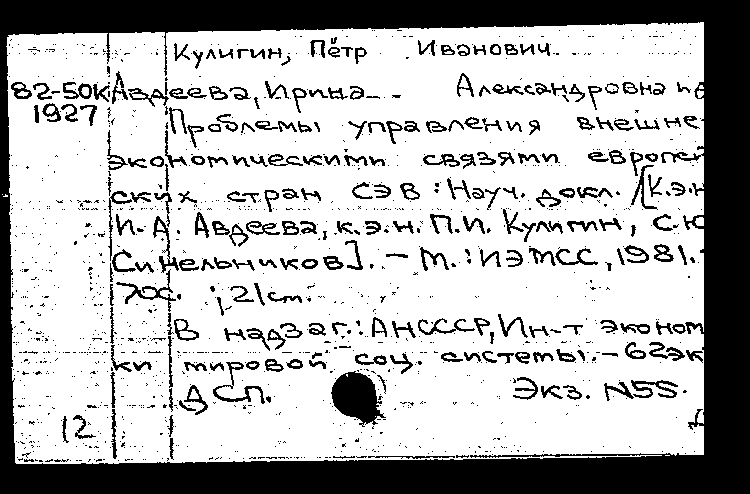 Кулигин, Пётр Иванович.
82-50К Авдеева, Ирина Александровна и д
1927
Проблемы управления внешне-
экономическими связями европей
ских стран СЭВ : Науч. докл. / [К.э.н
И.А. Авдеева, к.э.н. П.И. Кулигин, С.Ю
Синельников]. – М. : ИЭМСС, 1981. -
70с. ; 21 cm.
В надзаг.: АН СССР, Ин-т эконом
ки мировой соц. системы. – 62эк
ДСП. Экз. N55.
12